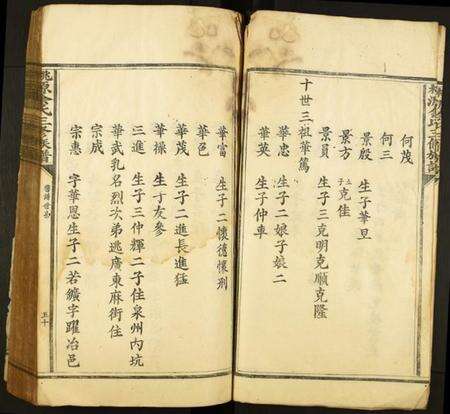 何茂
何三
景殷 生子華旦
景方 子克佳
景員 生子三克明克順克隆
十世三祖華篤
華忠 生子二娘子娘二
華英 生子仲車
華富 生子二懷德懷刑
華色
華茂 生子二進長進猛
華操 生丁友參
三進 生子三仲輝二子住泉州內坑
華武乳名烈次弟逃廣東麻街住
宗成
宗惠 字華恩生子二若鑛字躍冶邑
五十